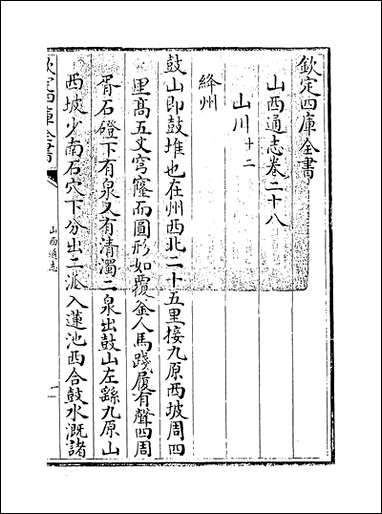 欽定四庫全書
山西通志卷二十八
山川十二
絳州
鼓山即鼓堆也在州西北二十五里接九原西坡周四
里高五丈穹窿而圓形如覆釜人馬踐履有聲四周
胥石磴下有泉又有清濁二泉出鼓山左繇九原山
西坡少南石穴下分出二派入蓮池西合鼓水溉諸
欽定四庫全書
山西通志
一